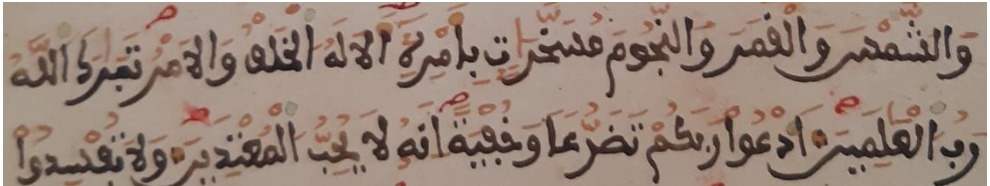 وَالشَّمْسَ وَالْقَمَرَ وَالنُّجُومَ مُسَخَّرَاتٍ بِأَمْرِهِ أَلَا لَهُ الْخَلْقُ وَالْأَمْرُ تَبَٰرَكَ اللَّهُ
رَبُّ الْعَٰلَمِينَ ادْعُوا رَبَّكُمْ تَضَرُّعًا وَخُفْيَةً إِنَّهُ لَا يُحِبُّ الْمُعْتَدِينَ وَلَا تُفْسِدُوا